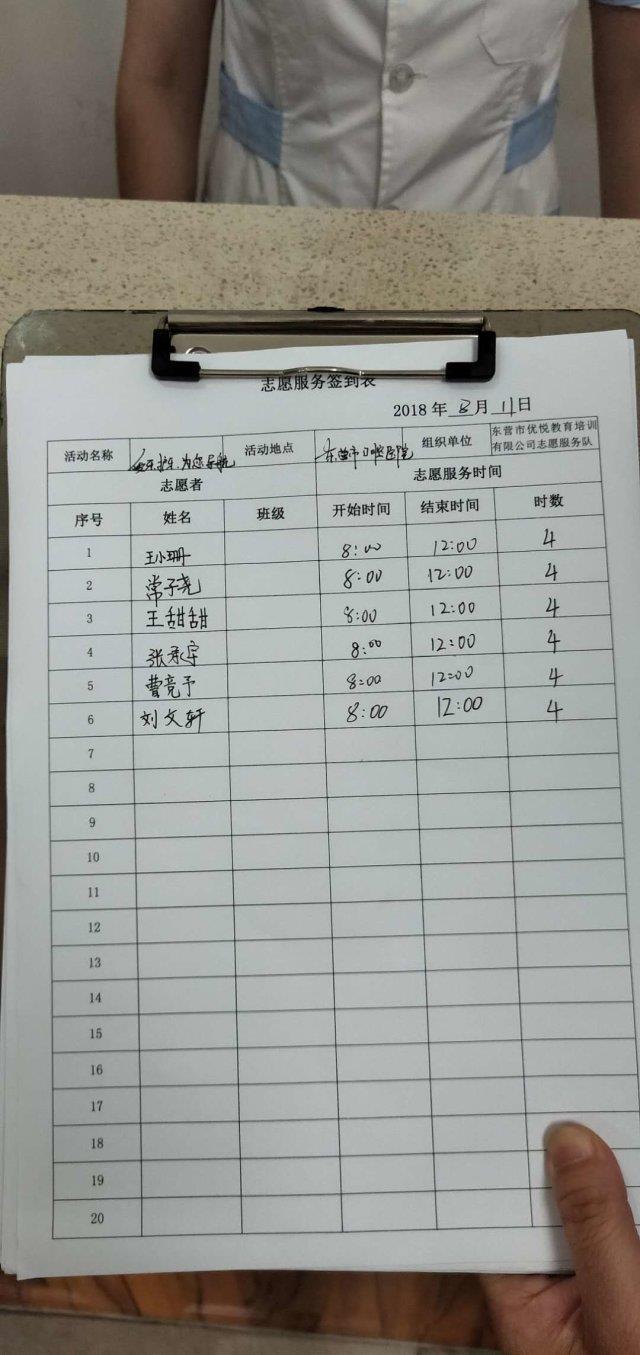 志愿服务签到表
2018 年 8 月 11 日
活动名称 为您导航 活动地点 东营市口腔医院 组织单位 东营市优悦教育培训
有限公司志愿服务队
志愿者 志愿服务时间
序号 姓名 班级 开始时间 结束时间 时数
1 王小珊 8:00 12:00 4
2 常子尧 8:00 12:00 4
3 王甜甜 8:00 12:00 4
4 张承宇 8:00 12:00 4
5 曹亮予 8:00 12:00 4
6 刘文轩 8:00 12:00 4
7
8
9
10
11
12
13
14
15
16
17
18
19
20